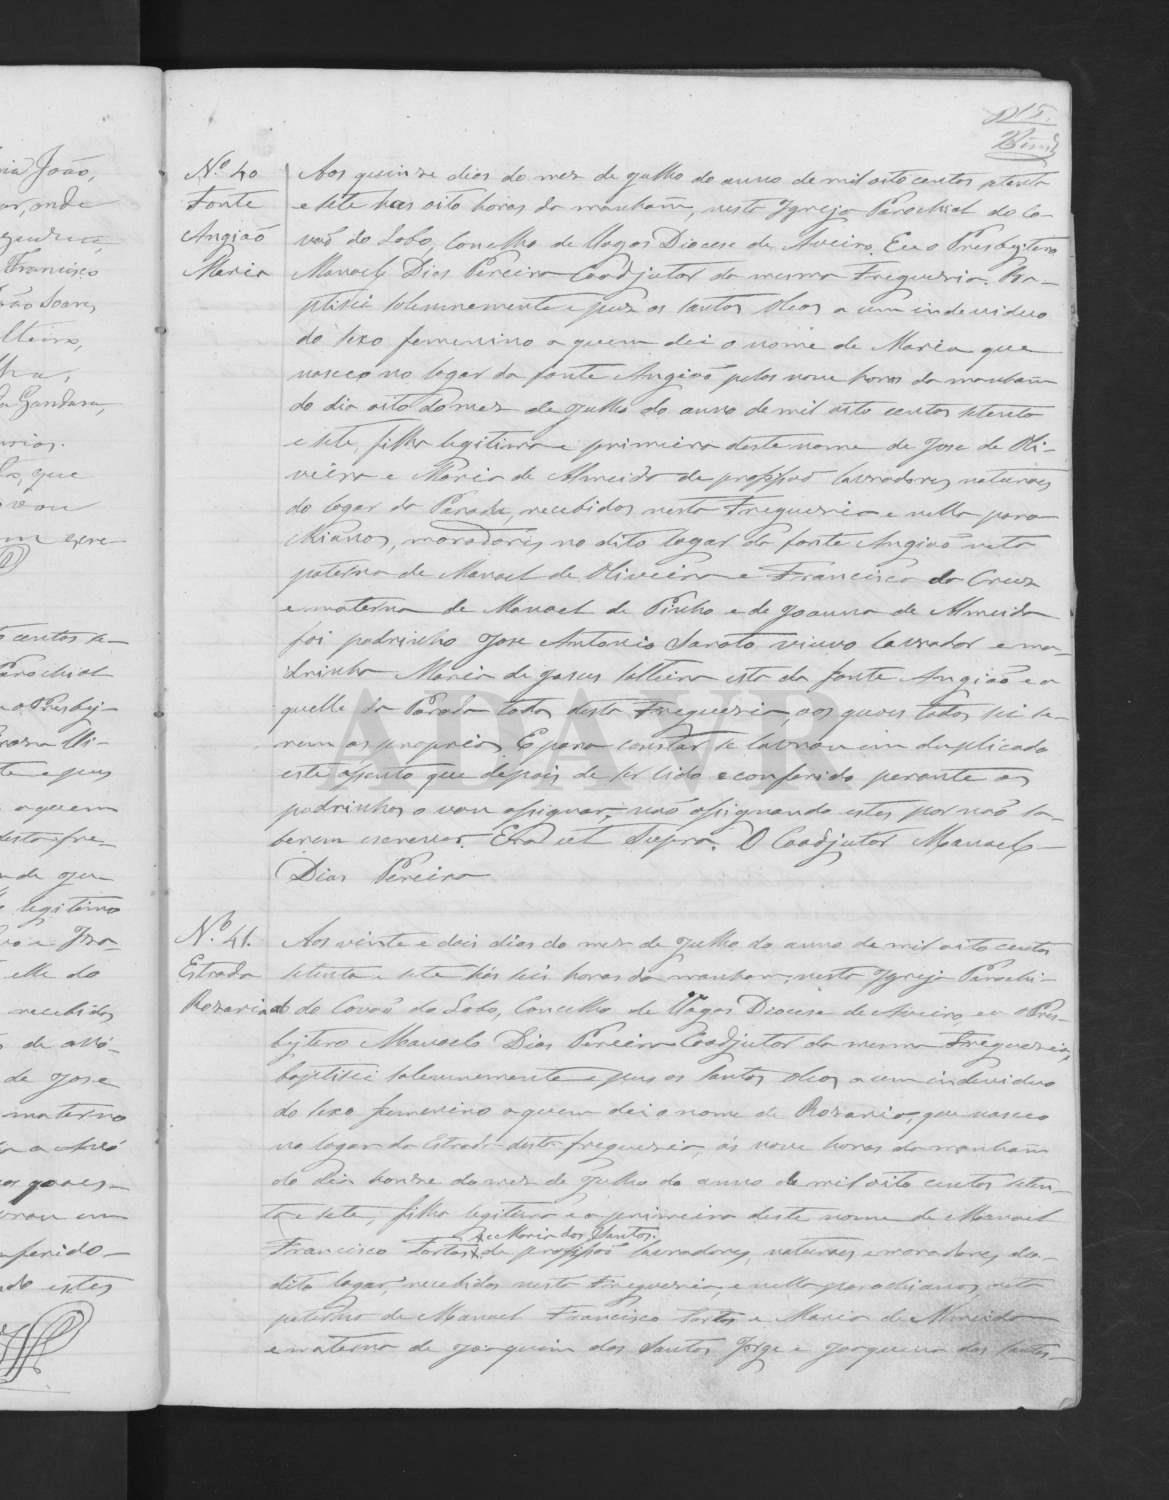 15.
ia João,
or, onde
Francisco
João Soares
lteira,
lha,
da Gandara,
lo, que
vou
m escre-
centos se-
Parochial
o Presby-
te e pus
a quem
desta fre-
legitimo
elle do
recebidos
de avó-
de Jose
materno
a Avó
os quaes-
vrou um
nferido-
do estes
Nº 40
Fonte
Angião
Maria
Aos quinze dias do mez de Julho do anno de mil oito centos setenta
e sete has oito horas da manham, nesta Igreja Parochial do Co-
vaõ do Lobo, Concelho de Vagos Diocese de Aveiro. Eu o Presbytero
Manoel Dias Pereira Coadjutor da mesma Freguezia. Ba-
ptisei solemnemente e puz os santos oleos a um individuo
do sexo femenino a quem dei o nome de Maria que
nasceo no logar da fonte Angiaõ pelas nove horas da manham
do dia oito do mez de Julho do anno de mil oito centos setenta
e sete, filha legitima e primeira deste nome de Jose de Oli-
veira e Maria de Almeida de profissaõ lavradores, naturaes
do logar da Parada, recebidos nesta Freguezia e nella paro
chianos, moradores no dito logar da fonte Angiaõ neta
paterna de Manoel de Oliveira e Francisca da Cruz
e materna de Manoel de Pinho e de Joanna de Almeida
foi padrinho Jose Antonio Sarato viuvo lavrador e ma-
drinha Maria de Jasus solteira esta da fonte Angiaõ e a
quelle da Parada todos desta Freguezia, aos quaes todos sei se-
rem os proprios. E para constar se lavrou em duplicado
este assento que depois de ser lido e conferido perante os
padrinhos o vou assignar, naõ assignando estes por naõ sa-
berem escrever. Era ut supra. O Coadjutor Manoel
Dias Pereira
Nº 41.
Estrada
Rozaria
Aos vinte e dois dias do mez de Julho do anno de mil oito centos
setenta e sete hás seis horas da manham, nesta Igreja Parochi-
al do Covaõ do Lobo, Concelho de Vagos Diocese de Aveiro, eu o Pres-
bytero Manoel Dias Pereira Coadjutor da mesma Freguezia,
baptisei solemnemente e pus os santos oleos a um individuo
do sexo femenino a quem dei o nome de Rozaria, que nasceo
no logar da Estrada desta freguezia, ás nove horas da manham
do dia honze do mez de Julho do anno de mil oito centos seten-
ta e sete, filha legitima e a primeira deste nome de Manoel
e Maria dos Santos.
Francisco Tortas de profissaõ lavradores, naturaes e moradores do
dito logar, recebidos nesta Freguezia, e nella parochianos, neta
paterna de Manoel Francisco Tortas e Maria de Almeida
e materna de Joaquim dos Santos Jorge e Joaquina dos Santos-
ADAVR